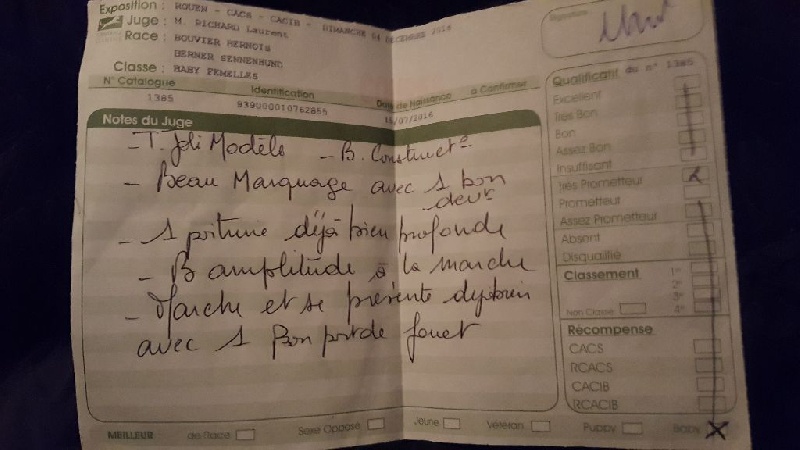 Exposition : ROUEN - CACS - CACIB - DIMANCHE DECEMBRE 2016
Juge : M. RICHARD Laurent
Race : BOUVIER BERNOIS
BERNER SENNENHUND
Classe : BABY FEMELLES
N° Catalogue Identification Date de Naissance a Confirmer
1385 939000010762855 /07/2016
Signature
Notes du Juge
- T. Joli Modèle - B. Construct°
- Beau Marquage avec 1 bon
- 1 poitrine déjà bien profonde
- B amplitude à la marche
- Marche et se présente déjà bien
avec 1 Bon port de fouet
Qualificatif du n° 1385
Excellent
Très Bon
Bon
Assez Bon
Insuffisant
Très Prometteur X
Prometteur
Assez Prometteur
Absent
Disqualifié
Classement 1°
2°
3°
Non Classé 4°
Récompense
CACS
RCACS
CACIB
RCACIB
MEILLEUR de Race Sexe Opposé Jeune Vétéran Puppy Baby X